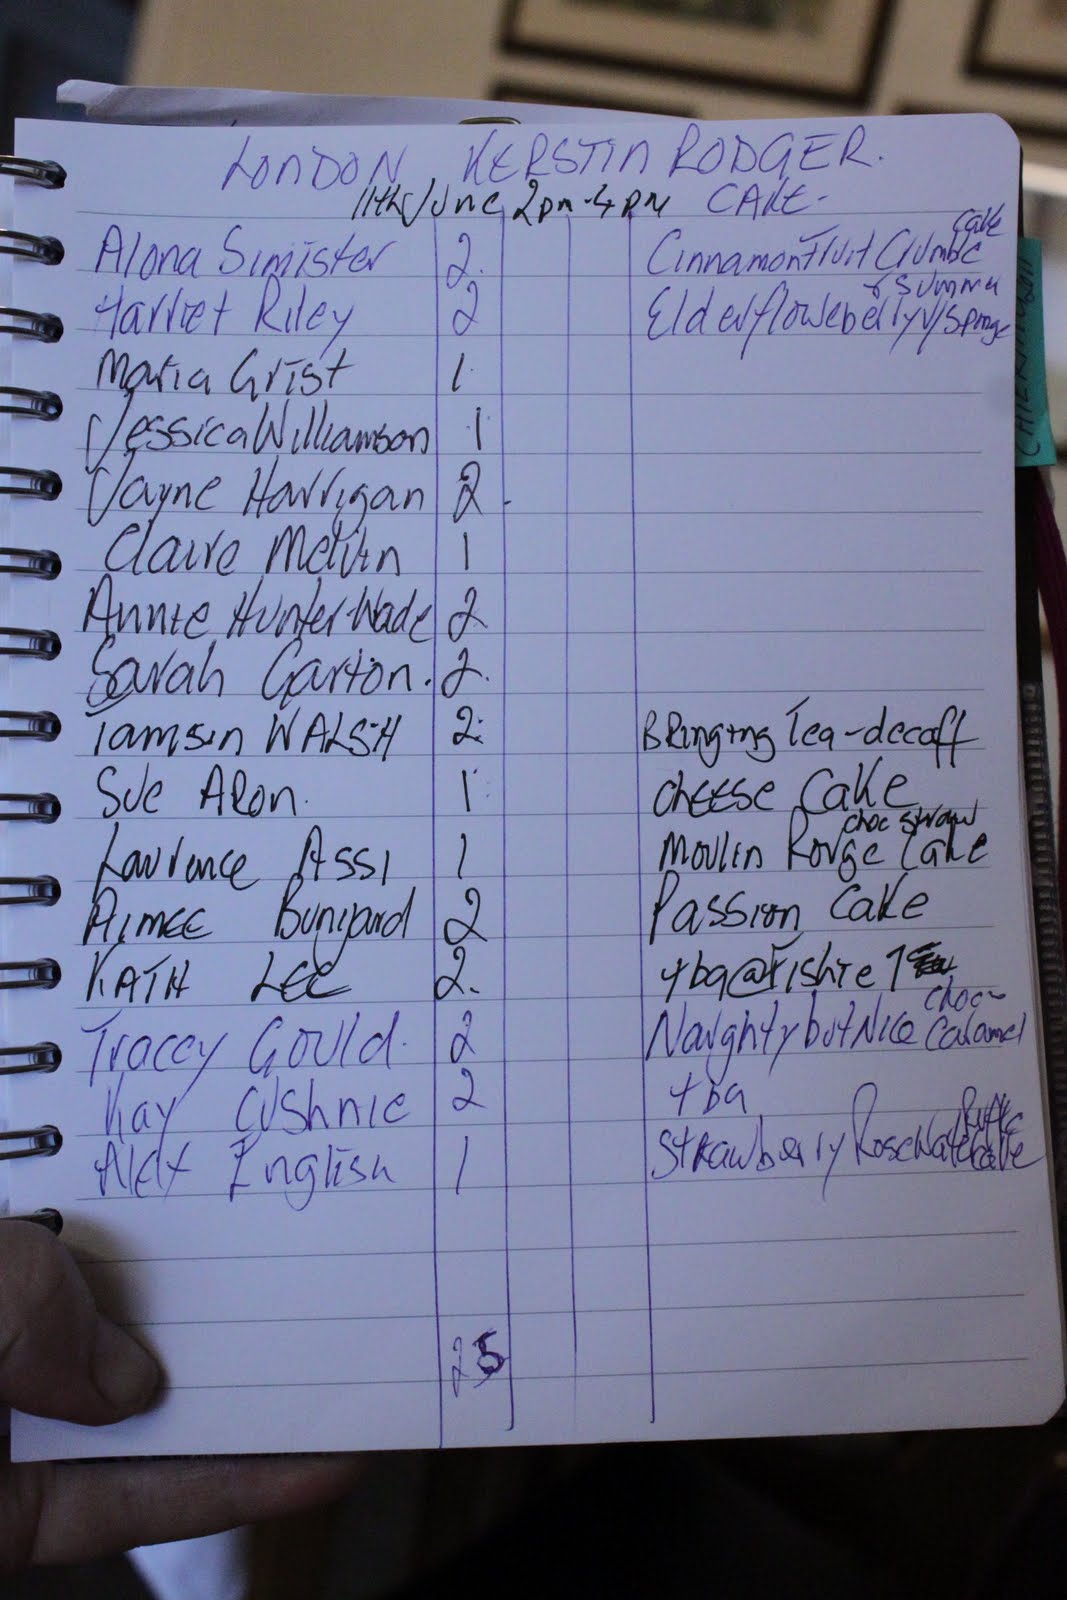 LONDON KERSTIN RODGER.
11th/June 2pm-4pm CAKE-
Alona Simister 2. Cinnamon Fruit Crumble cake
Harriet Riley 2 Elderflower & summer berry v/sponge
Maria Grist 1.
Jessica Williamson 1
Jayne Harrigan 2
Claire Melvin 1
Annie Hunter-Wade 2
Sarah Garton. 2.
Tamsin WALSH 2. BRinging Tea-decaff
Sue ARon. 1 cheese cake
Lawrence Assi 1 Moulin Rouge choc straw cake
AIMEE Bunyard 2 Passion cake
KATH LEE 2. tba@Fishie 1
Tracey Gould. 2 Naughty but Nice choc- caramel
Kay Cushnie 2 tba
Alex English 1 Strawberry Rosewater Ruffle cake
25